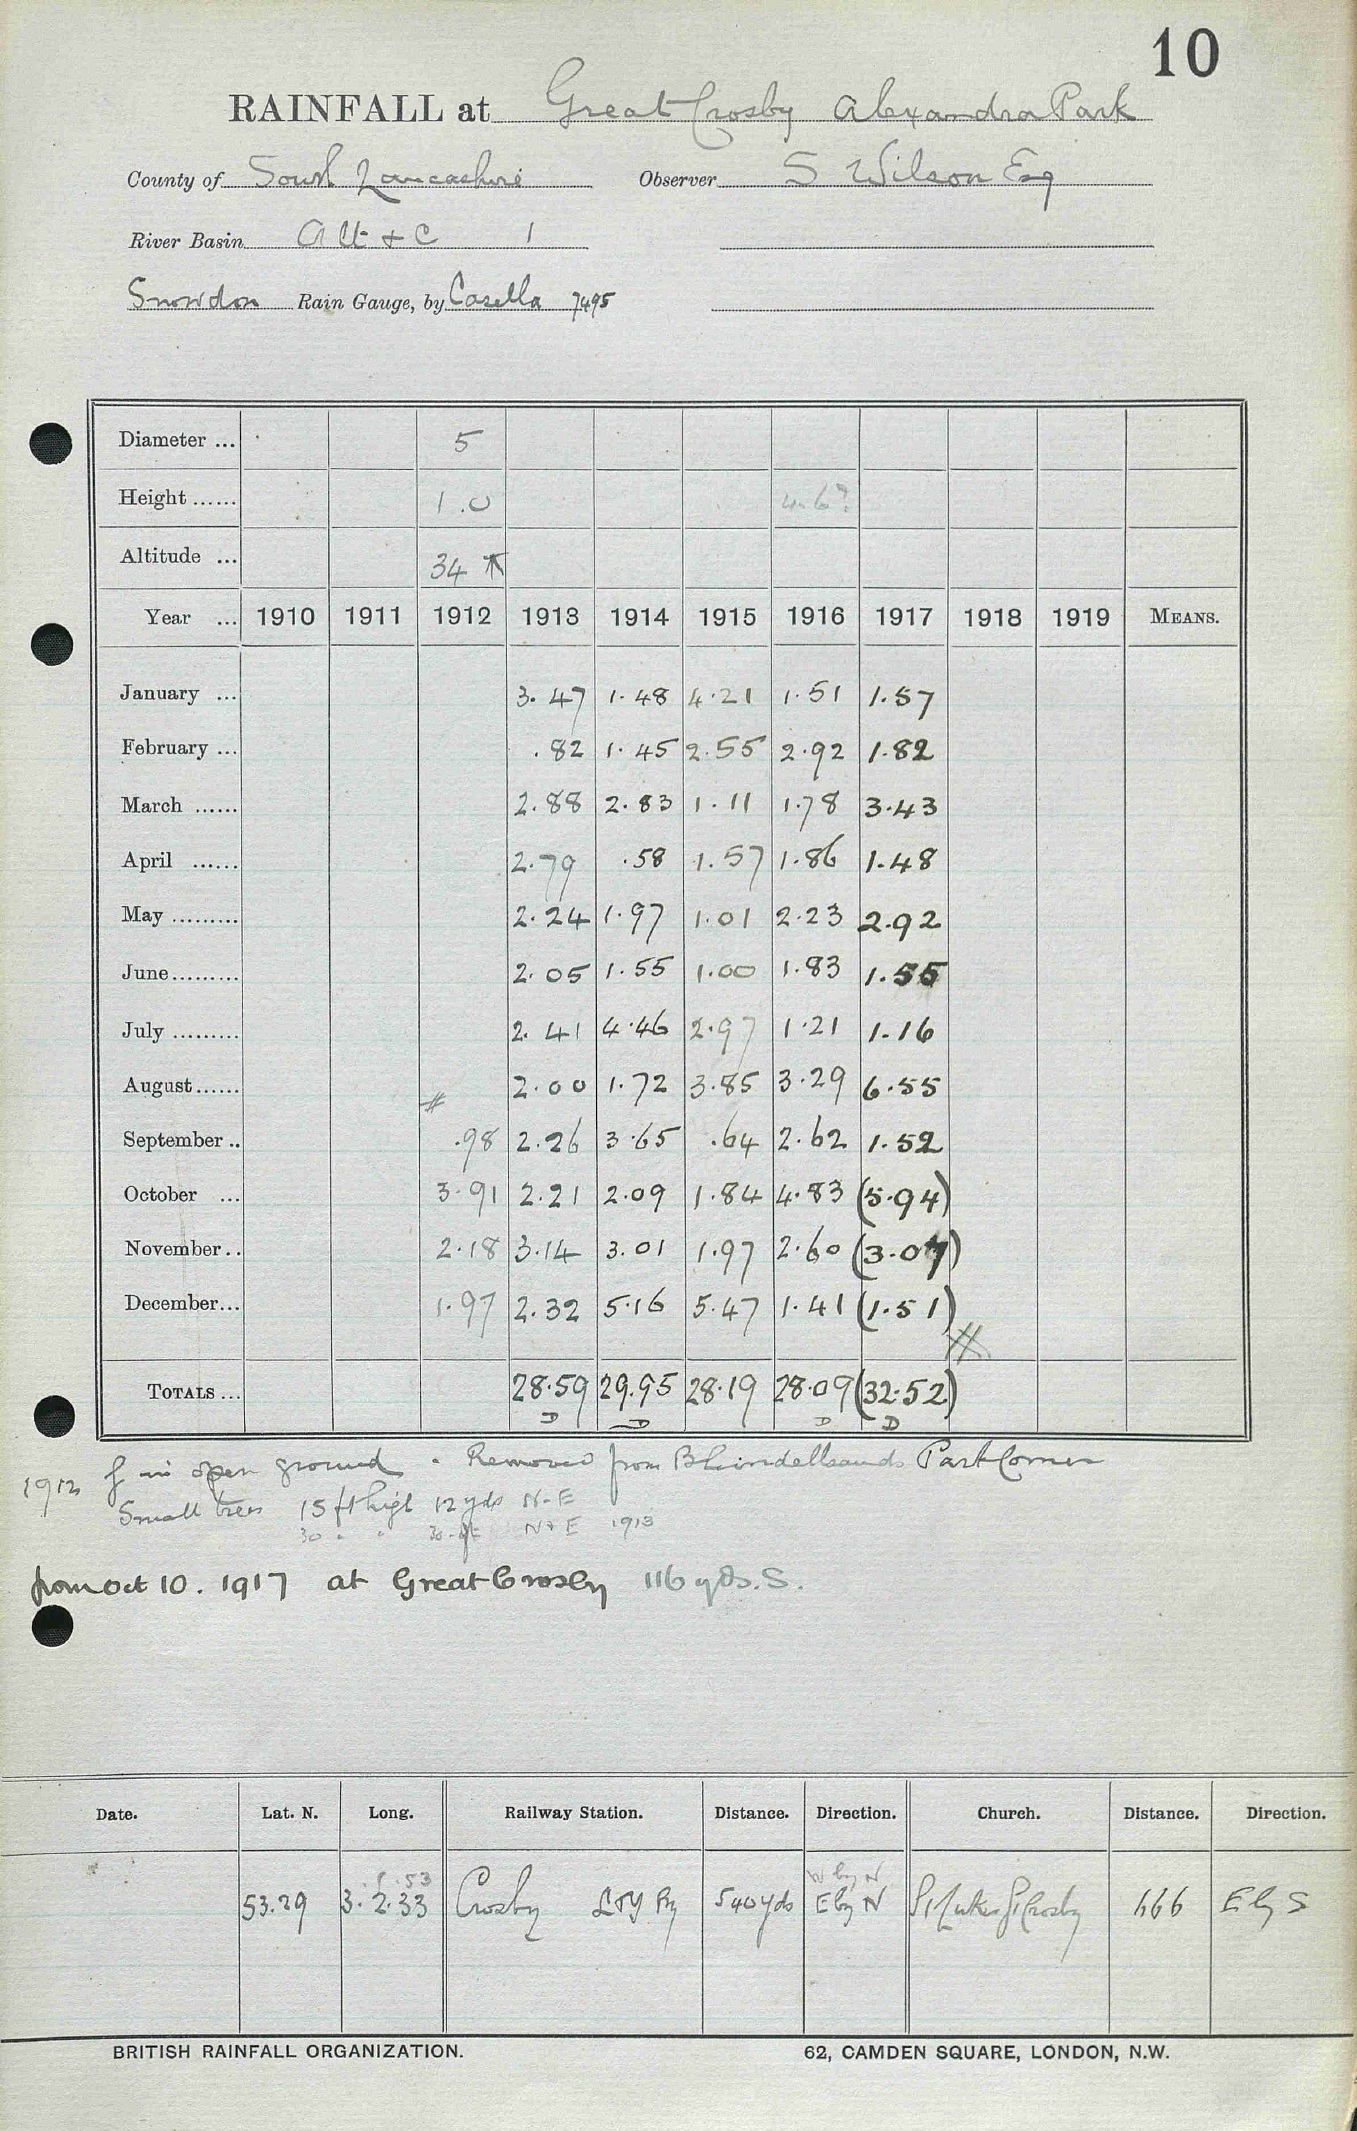 10
RAINFALL at Great Crosby Alexandra Park
County of South Lancashire Observer S Wilson Esq
River Basin Alt + C 1
Snowdon Rain Gauge, by Casella 7495
Diameter ... 5
Height ...... 1.0 4.6?
Altitude ... 34
Year ... 1910 1911 1912 1913 1914 1915 1916 1917 1918 1919 MEANS.
January ... 3.47 1.48 4.21 1.51 1.57
February ... .82 1.45 2.55 2.92 1.82
March ...... 2.88 2.83 1.11 1.78 3.43
April ...... 2.79 .58 1.57 1.86 1.48
May ......... 2.24 1.97 1.01 2.23 2.92
June......... 2.05 1.55 1.00 1.83 1.55
July ......... 2.41 4.46 2.97 1.21 1.16
August...... 2.00 1.72 3.85 3.29 6.55
September .. .98 2.26 3.65 .64 2.62 1.52
October ... 3.91 2.21 2.09 1.84 4.83 (5.94)
November.. 2.18 3.14 3.01 1.97 2.60 (3.07)
December... 1.97 2.32 5.16 5.47 1.41 (1.51)
TOTALS ... 28.59 29.95 28.19 28.09 (32.52)
D D D D
1912 in open ground . Removed from Blundellsands Park Corner
Small trees 15 ft high 12 yds N-E
30 " " 30 N+E 1913
from Oct 10. 1917 at Great Crosby 116 yds. S.
Date. Lat. N. Long. Railway Station. Distance. Direction. Church. Distance. Direction.
53 W by N
53.29 3.2.33 Crosby L & Y Ry 540 yds E by N St Lukes Gt Crosby 666 E by S
BRITISH RAINFALL ORGANIZATION. 62, CAMDEN SQUARE, LONDON, N.W.